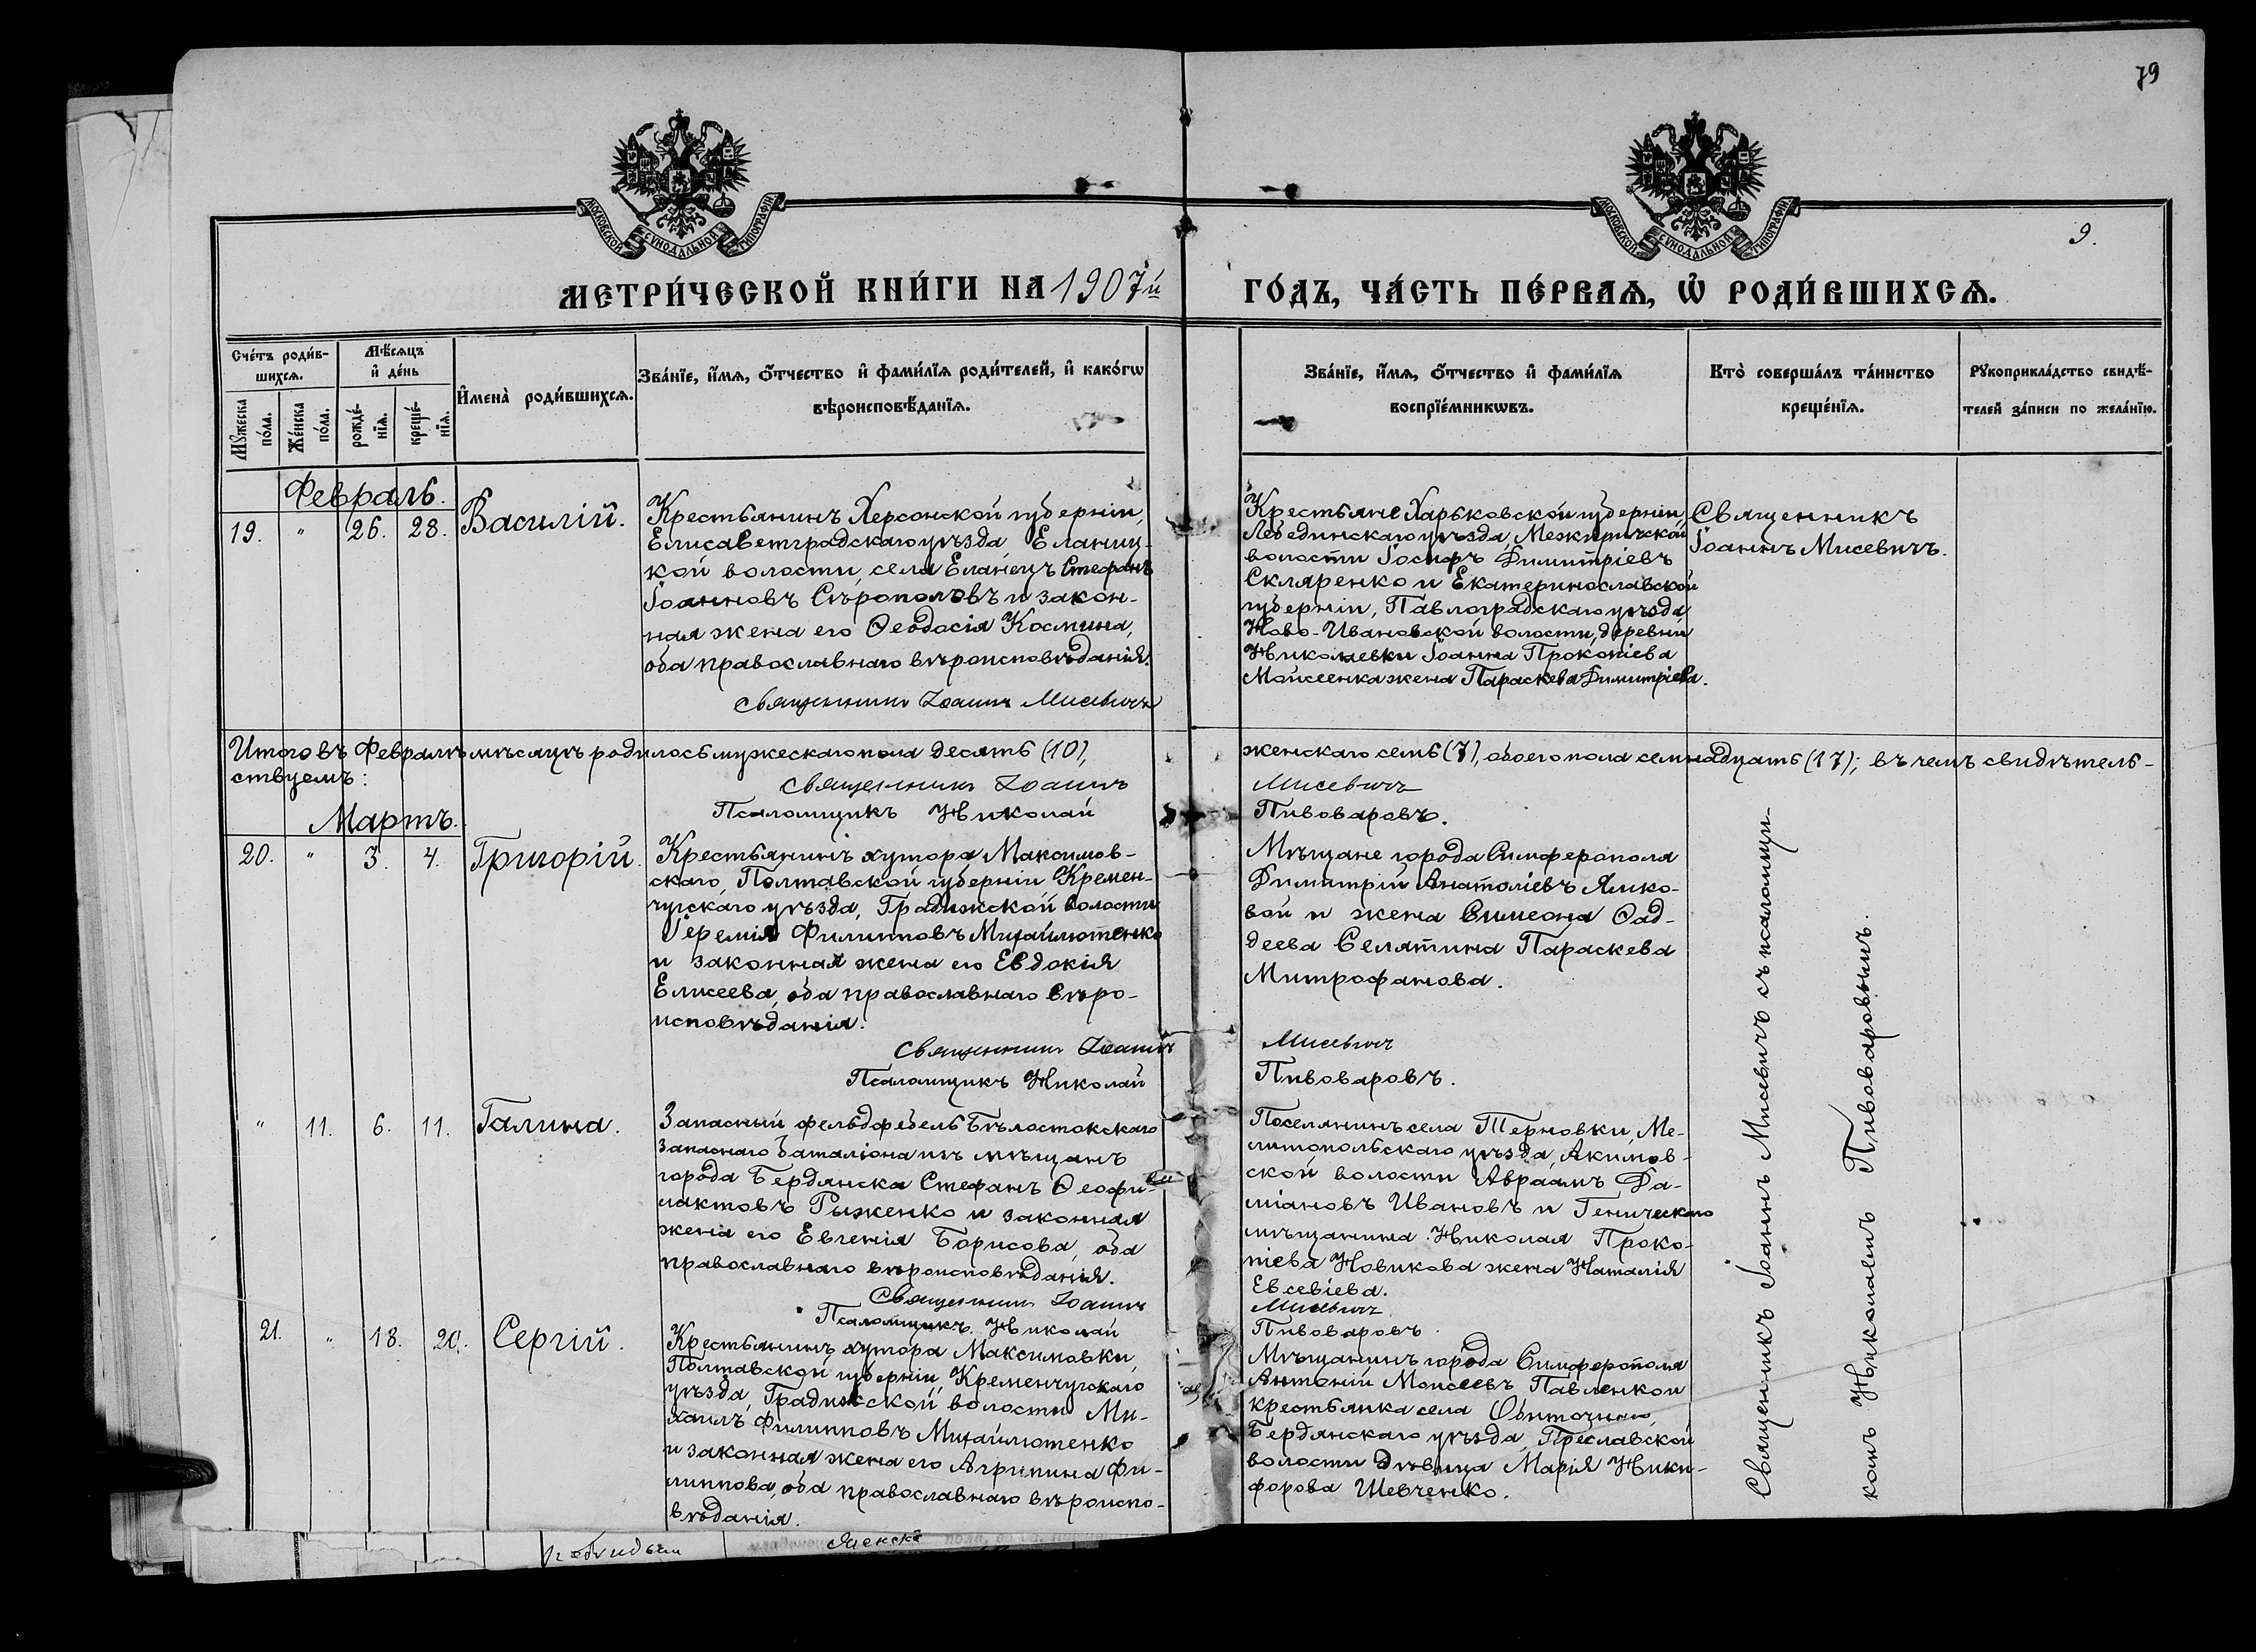 79
МОСКОВСКОЙ СѴНОДАЛЬНОЙ ТИПОГРАФІИ
МОСКОВСКОЙ СѴНОДАЛЬНОЙ ТИПОГРАФІИ
9.
МЕТРИ́ЧЕСКОЙ КНИ́ГИ НА 1907й ГО́ДЪ, ЧА́СТЬ ПЕ́РВАѦ, Ѡ҆ РОДИ́ВШИХСѦ.
Сче́тъ роди́в-
шихсѧ.
Мꙋ́жеска
по́ла.
Же́нска
по́ла.
Мѣ́сѧцъ
и҆ де́нь
рожде́-
нїѧ.
креще́-
нїѧ.
И҆мена̀ роди́вшихсѧ.
Зва́нїе, и҆́мѧ, ѻ҆́тчество и҆ фами́лїѧ роди́телей, и҆ како́гѡ
вѣроисповѣ́данїѧ.
Зва́нїе, и҆́мѧ, ѻ҆́тчество и҆ фами́лїѧ
воспрїе́мникѡвъ.
Кто̀ соверша́лъ та́инство
креще́нїѧ.
Рꙋкоприкла́дство свидѣ́-
телей за́писи по жела́нїю.
Февраль.
19. " 26. 28. Василій.
Крестьянинъ Херсонской губерніи,
Елисаветградскаго уѣзда, Еланец-
кой волости, села Еланецъ Стефанъ
Іоанновъ Сѣрополовъ и закон-
ная жена его Ѳеодосія Космина,
оба православнаго вѣроисповѣданія.
Священникъ Іоаннъ Мисевичъ
Крестьяне Харьковской губерніи,
Лебединскаго уѣзда, Межиричской
волости Іосифъ Димитріевъ
Скляренко и Екатеринославской
губерніи, Павлоградскаго уѣзда
Ново-Ивановской волости, деревни
Николаевки Іоанна Прокопіева
Мойсеенка жена Параскева Димитріева.
Священникъ
Іоаннъ Мисевичъ.
Итого въ Февралѣ мѣсяцѣ родилось мужескаго пола десять (10), женскаго семь (7), обоего пола семнадцать (17); въ чемъ свидѣтель-
ствуемъ:
Священникъ Іоаннъ Мисевичъ
Псаломщикъ Николай Пивоваровъ.
Мартъ.
20. " 3. 4. Григорій.
Крестьянинъ хутора Максимов-
скаго, Полтавской губерніи, Кремен-
чугскаго уѣзда, Градижской волости
Іеремія Филипповъ Михайлютенко
и законная жена его Евдокія
Елисеева, оба православнаго вѣро-
исповѣданія.
Мѣщане города Симферополя
Димитрій Анатоліевъ Ялико-
вой и жена Симеона Ѳад-
деева Селятина Параскева
Митрофанова.
Священникъ Іоаннъ Мисевичъ
Псаломщикъ Николай Пивоваровъ.
" 11. 6. 11. Галина.
Запасный фельдфебель Бѣлостокскаго
запаснаго баталіона изъ мѣщанъ
города Бердянска Стефанъ Ѳеофи-
лактовъ Рыженко и законная
жена его Евгенія Борисова, оба
православнаго вѣроисповѣданія.
Поселянинъ села Терновки, Ме-
литопольскаго уѣзда, Акимов-
ской волости Авраамъ Да-
міановъ Ивановъ и Геническаго
мѣщанина Николая Проко-
піева Новикова жена Наталія
Евсевіева.
Священникъ Іоаннъ Мисевичъ
Псаломщикъ Николай Пивоваровъ.
21. " 18. 20. Сергій.
Крестьянинъ хутора Максимовки,
Полтавской губерніи, Кременчугскаго
уѣзда, Градижской волости Ми-
хаилъ Филипповъ Михайлютенко
и законная жена его Агрипина Фи-
липпова, оба православнаго вѣроиспо-
вѣданія.
Мѣщанинъ города Симферополя
Антоній Моисеевъ Павленко и
крестьянка села Обиточнаго,
Бердянскаго уѣзда, Преславской
волости дѣвица Марія Ники-
форова Шевченко.
Священникъ Іоаннъ Мисевичъ съ псаломщи-
комъ Николаемъ Пивоваровымъ.